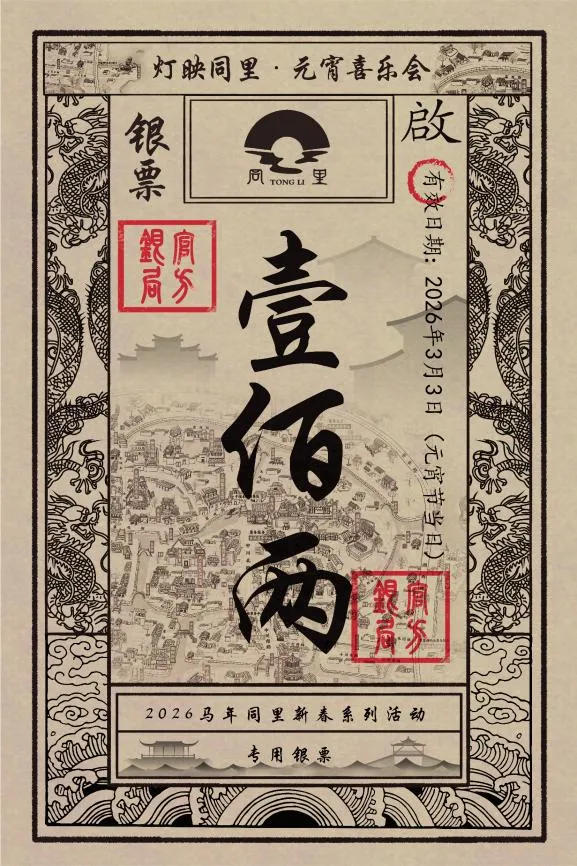 灯映同里·元宵喜乐会
银票
同里
TONG LI
啟
有效日期：2026年3月3日（元宵节当日）
官方
銀局
壹佰两
官方
銀局
2026马年同里新春系列活动
专用银票